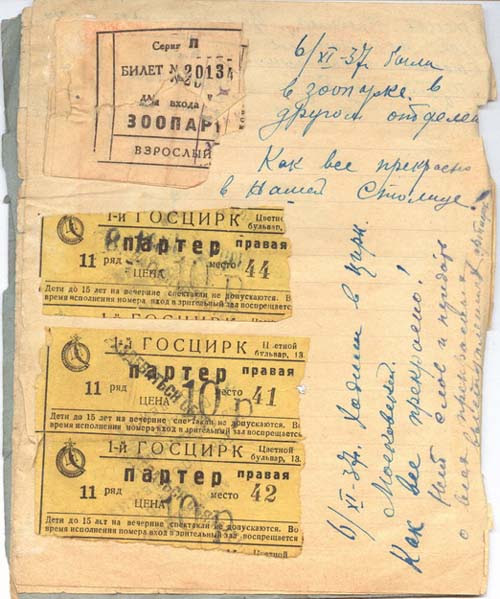 Серия П
БИЛЕТ № 20134
для входа
ЗООПАР
ВЗРОСЛЫЙ
6/XI-37г. была
в зоопарке в
другом отделен
Как все прекрасно
в нашей Столице
1-й ГОСЦИРК Цветн
бульвар,
партер правая
11 ряд место 44
ЦЕНА 10 р
Дети до 15 лет на вечерние спектакли не допускаются. Во
время исполнения номера вход в зрительный зал воспрещается
1-й ГОСЦИРК Цветной
бульвар, 13.
партер правая
11 ряд место 41
ЦЕНА 10 р
Дети до 15 лет на вечерние спектакли не допускаются. Во
время исполнения номера вход в зрительный зал воспрещается
1-й ГОСЦИРК Цветной
бульвар, 13.
партер правая
11 ряд место 42
ЦЕНА 10 р
Дети до 15 лет на вечерние спектакли не допускаются. Во
время исполнения номера вход в зрительный зал воспрещается
Цветной
6/XI-37г. Ходили в цирк
Московский.
Как все прекрасно!
Нет слов и
о всех прекрасных